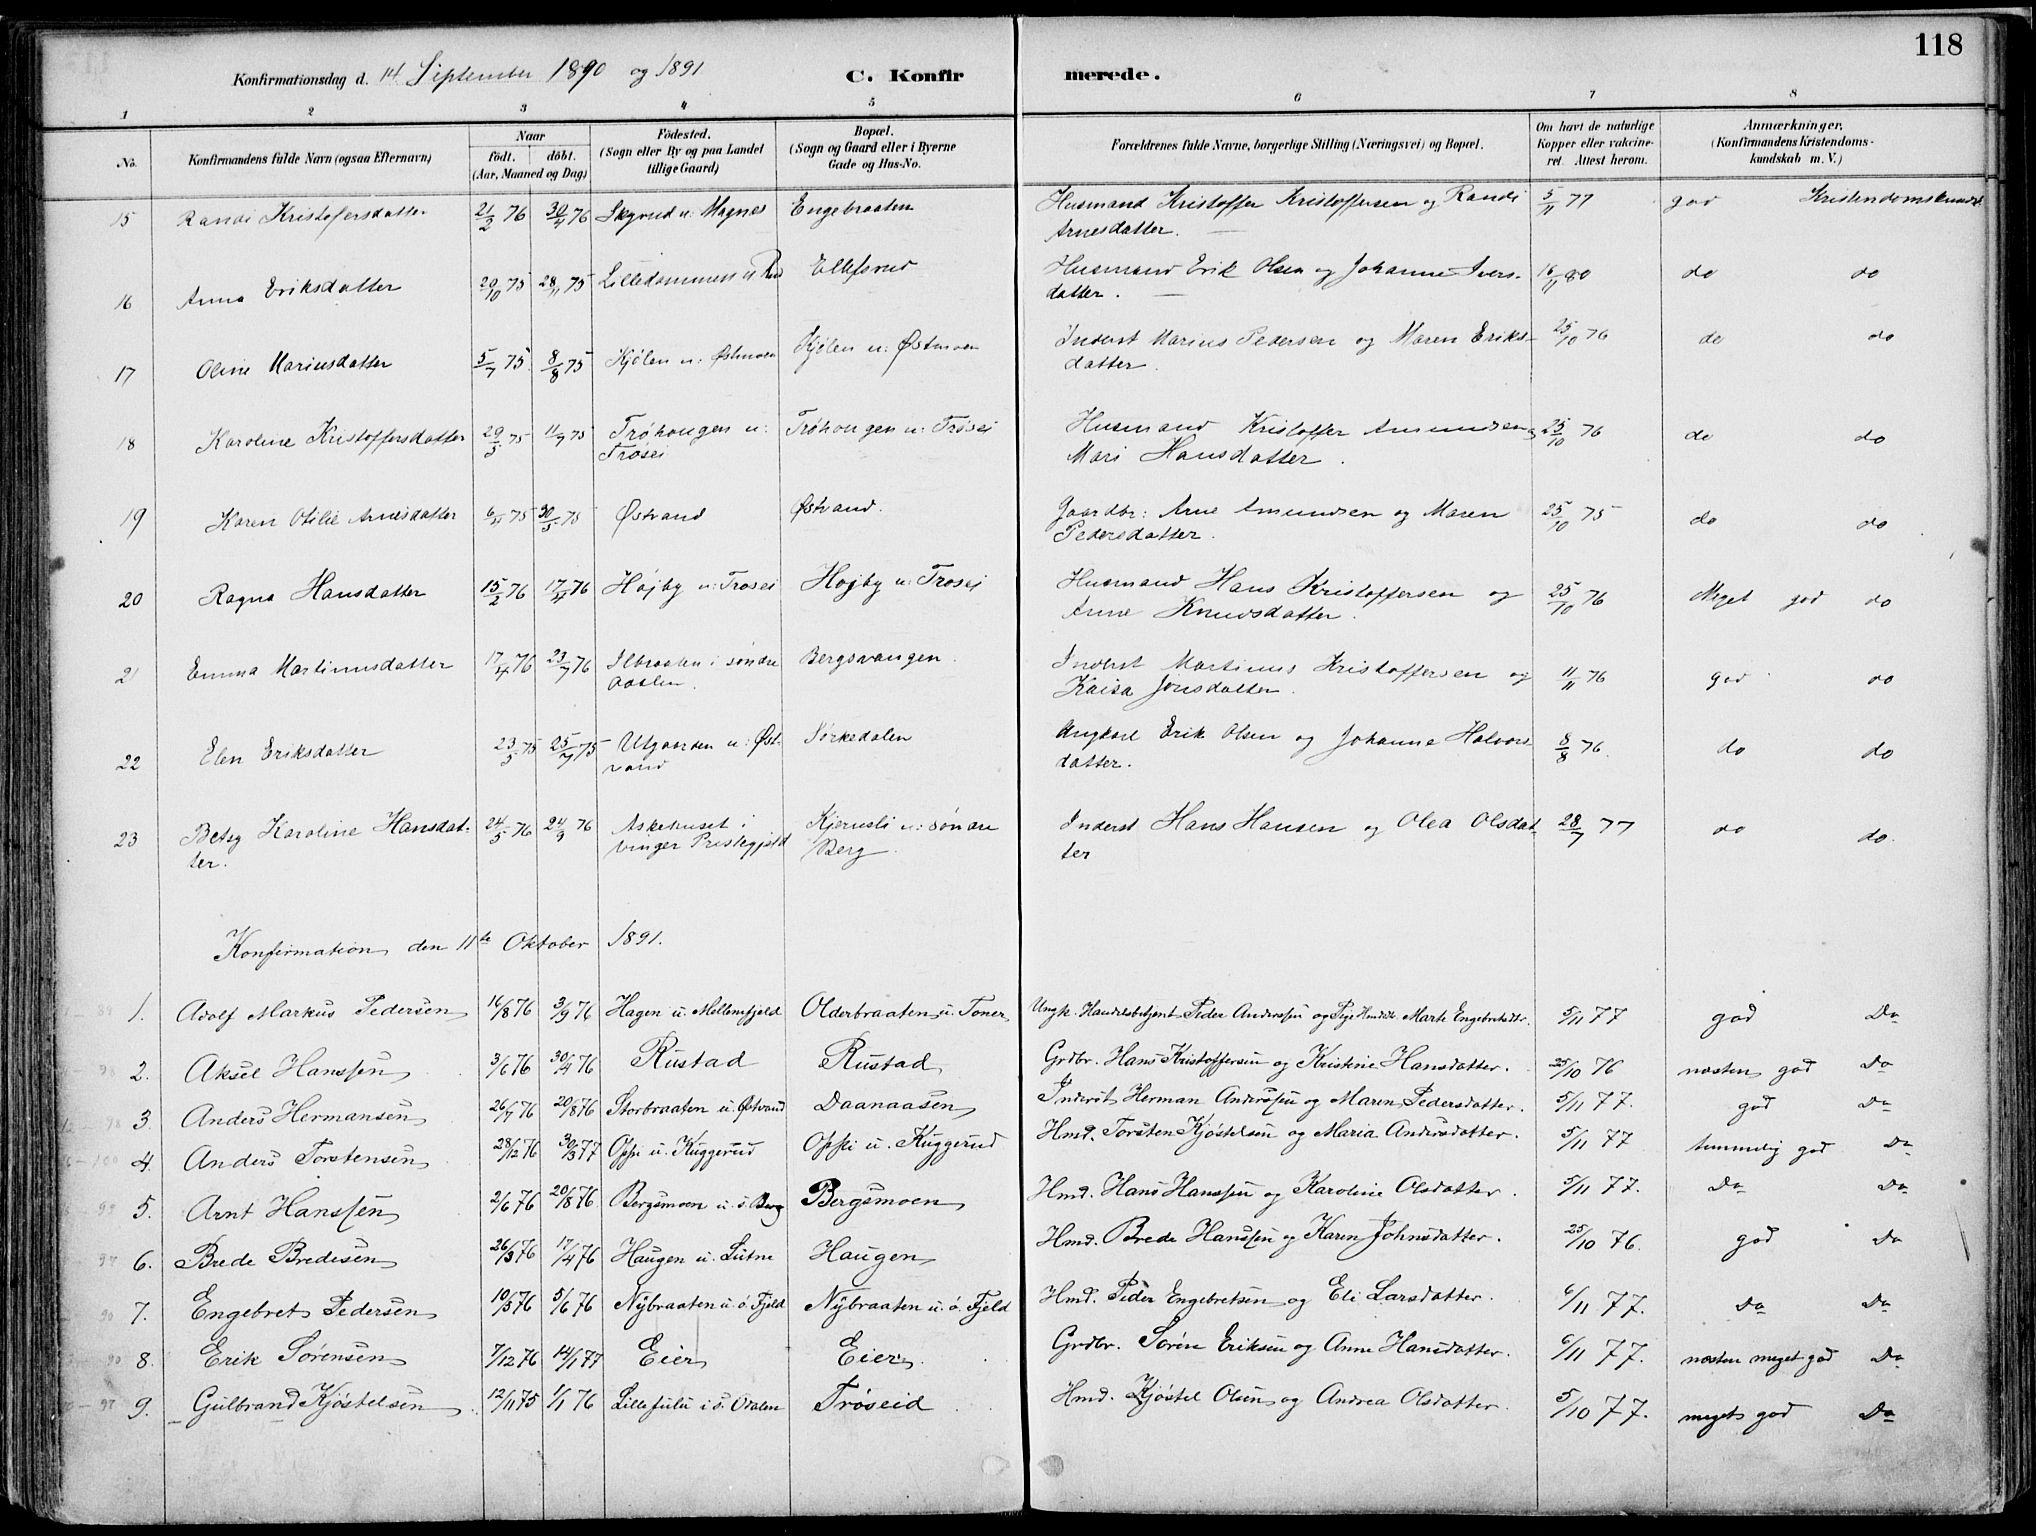 118
Konfirmationsdag d. 14 September 1890 og 1891 C. Konfirmerede.
1 2 3 4 5 6 7 8
No. Konfirmandens fulde Navn (ogsaa Efternavn) Naar født. døbt. (Aar, Maaned og Dag) Fødested. (Sogn eller By og paa Landet tillige Gaard) Bopæl. (Sogn og Gaard eller i Byerne Gade og Hus-No. Forældrenes fulde Navne, borgerlige Stilling (Næringsvei) og Bopæl. Om havt de naturlige Kopper eller vakcineret. Attest herom. Anmærkninger. (Konfirmandens Kristendomskundskab m. V.)
15 Randi Kristofersdatter 21/2 76 30/4 76 Skyrud u: Magnes Engebraaten Husmand Kristoffer Kristoffersen og Randi 5/11 77 god Kristendomskundsk
Arnesdatter.
16 Anna Eriksdatter 29/10 75 28/11 75 Lilledammen u Rud Ellefsrud Husmand Erik Olsen og Johanne Ivers- 16/11 80 do do
datter.
17 Oline Mariusdatter 5/7 75 8/8 75 Kjölen u: Østmoen Kjölen u: Østmoen Inderst Marius Pedersen og Maren Eriks- 25/10 76 do do
datter.
18 Karoline Kristoffersdatter 29/5 75 11/7 75 Tröhougen u: Tröhougen u: Trösei Husmand Kristoffer Amundsen og 25/10 76 do do
Trøsei Mari Hansdatter.
19 Karen Otilie Arnesdatter 6/4 75 30/5 75 Østvand Østvand. Gaardbr: Arne Amundsen og Maren 25/10 75 do do
Pedersdatter.
20 Ragna Hansdatter 15/2 76 17/4 76 Højby u: Trøsei Højby u: Trøsei Husmand Hans Kristoffersen og 25/10 76 Meget god do
Anne Knudsdatter.
21 Emma Martinusdatter 17/4 76 23/7 76 Ilbraaten i søndre Bergsvangen. Inderst Martinus Kristoffersen og 11/11 76 god do
Odalen. Kaisa Jonsdatter.
22 Elen Eriksdatter 23/5 75 25/7 75 Utgaarden u: Øst- Sørkedalen Ungkarl Erik Olsen og Johanne Halvors- 8/8 76. do do
vand datter.
23 Betsy Karoline Hansdat- 24/5 76 24/9 76 Askehuset i Kjernsli u: søndre Inderst Hans Hansen og Olea Olsdat- 28/7 77 do do.
ter. Vinger Prestegjeld Berg. ter
Konfirmation den 11te Oktober 1891.
1. Adolf Markus Pedersen 16/8 76 3/9 76 Hagen u. Mellemfjeld Olderbraaten u. Toner Ungk. Handelsbetjent Peder Anderssen og Pige Marte Engebretsdtr. 5/11 77 god Do
2. Aksel Hanssen 3/6 76 30/4 76 Rustad Rustad Grdbr. Hans Kristoffersen og Kristine Hansdatter. 25/10 76 næsten god Do
3. Anders Hermansen 26/7 76 20/8 76 Storbraaten u. Østvand Daanaasen Inderst Herman Anderssen og Maren Pedersdatter. 5/11 77. god Do
4. Anders Torstensen 28/12 76 30/3 77 Oppi u. Kuggerud Oppi u. Kuggerud Hmd. Torsten Kjöstelsen og Maria Andersdatter. 5/11 77 temmelig god Do
5. Arnt Hanssen 2/6 76 20/8 76 Bergsmoen u. s. Berg Bergsmoen Hmd. Hans Hanssen og Karoline Olsdatter. 5/11 77. Do Do
6. Brede Bredesen 26/3 76 17/4 76 Haugen u. Sutne Haugen Hmd. Brede Hanssen og Karen Johnsdatter. 25/10 76. god Do
7. Engebret Pedersen 10/5 76 5/6 76 Nybraaten u. ö. Fjeld Nybraaten u. ö. Fjeld Hmd. Peder Engebretsen og Eli Larsdatter. 6/11 77. Do Do
8. Erik Sørensen 7/12 76 14/1 77 Eier Eier. Grdbr. Sørin Eriksen og Anne Hansdatter. 6/11 77. næsten meget god Do
9. Gulbrand Kjöstelsen 12/11 75 1/1 76 Lillefulu i s. Odalen Trøseid Hmd. Kjöstel Olsen og Andrea Olsdatter. 5/10 77. meget god Do